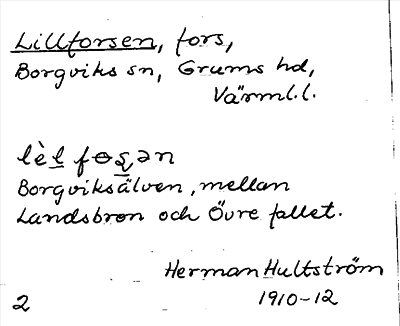 Lillforsen, fors,
Borgviks sn, Grums hd,
Värml.l.
lèl fosən
Borgviksälven, mellan
Landsbron och Övre fallet.
Herman Hultström
2 1910-12